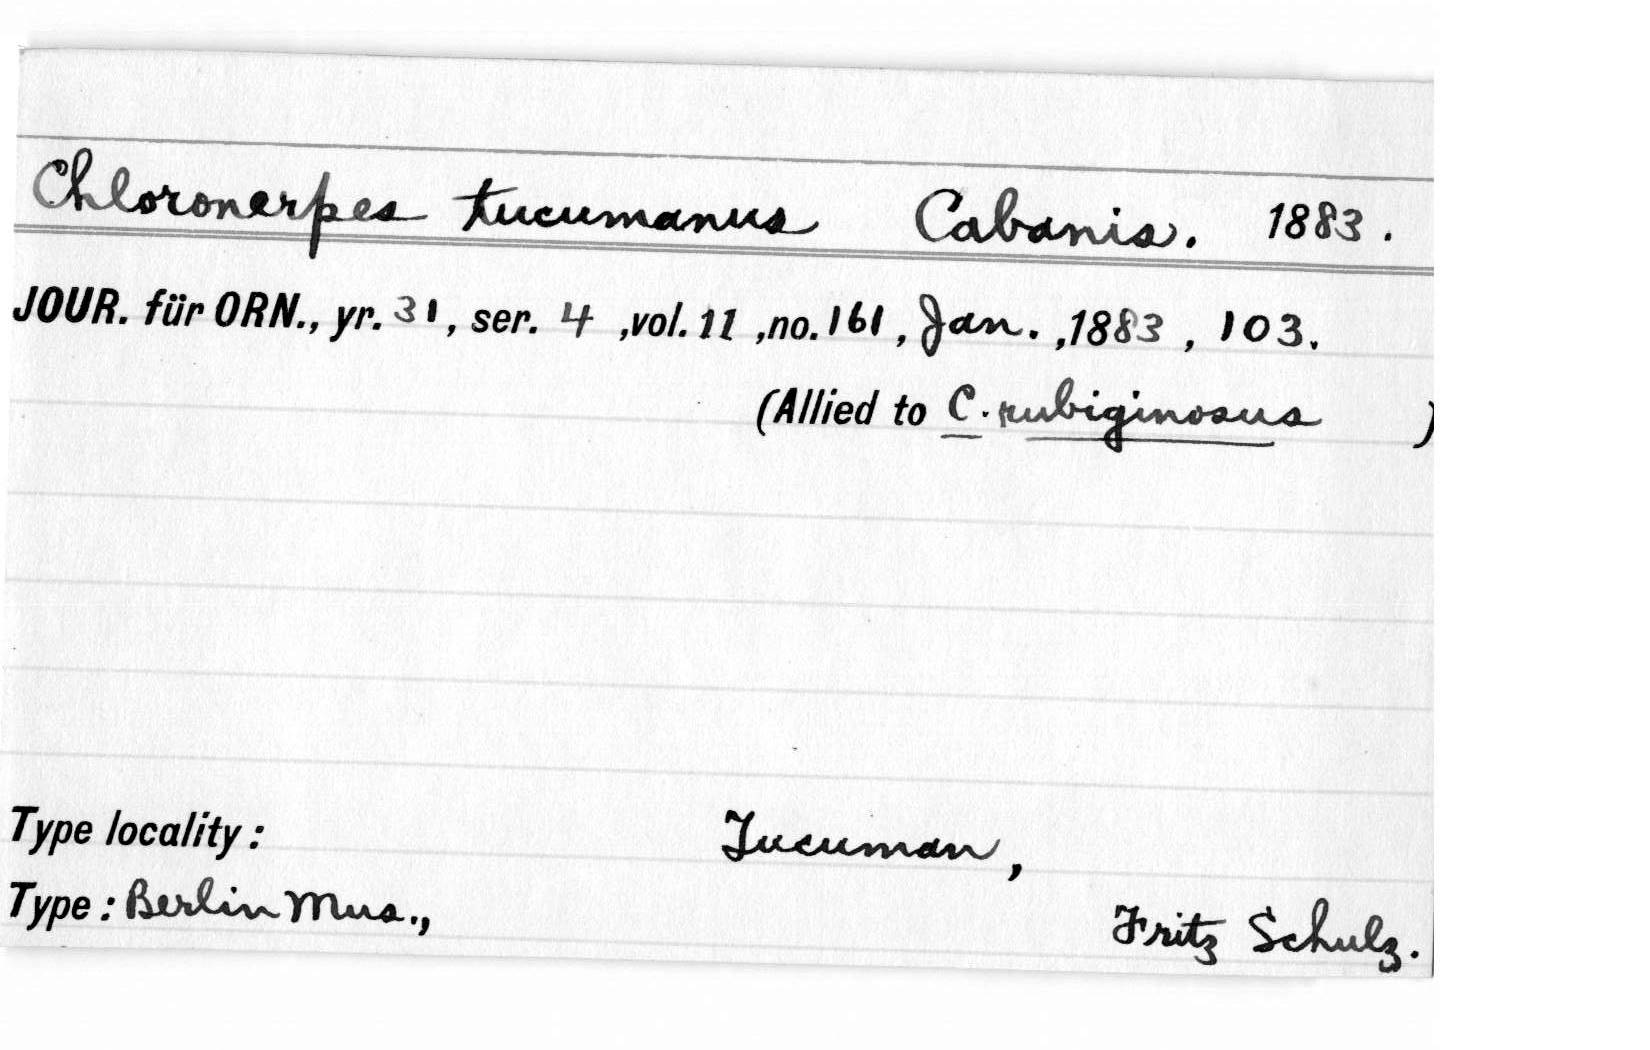 Chloronerpes tucumanus Cabanis. 1883.
JOUR. für ORN., yr. 31, ser. 4 ,vol. 11 ,no. 161, Jan. ,1883 , 103.
(Allied to C. rubiginosus )
Type locality: Tucuman,
Type: Berlin Mus., Fritz Schulz.